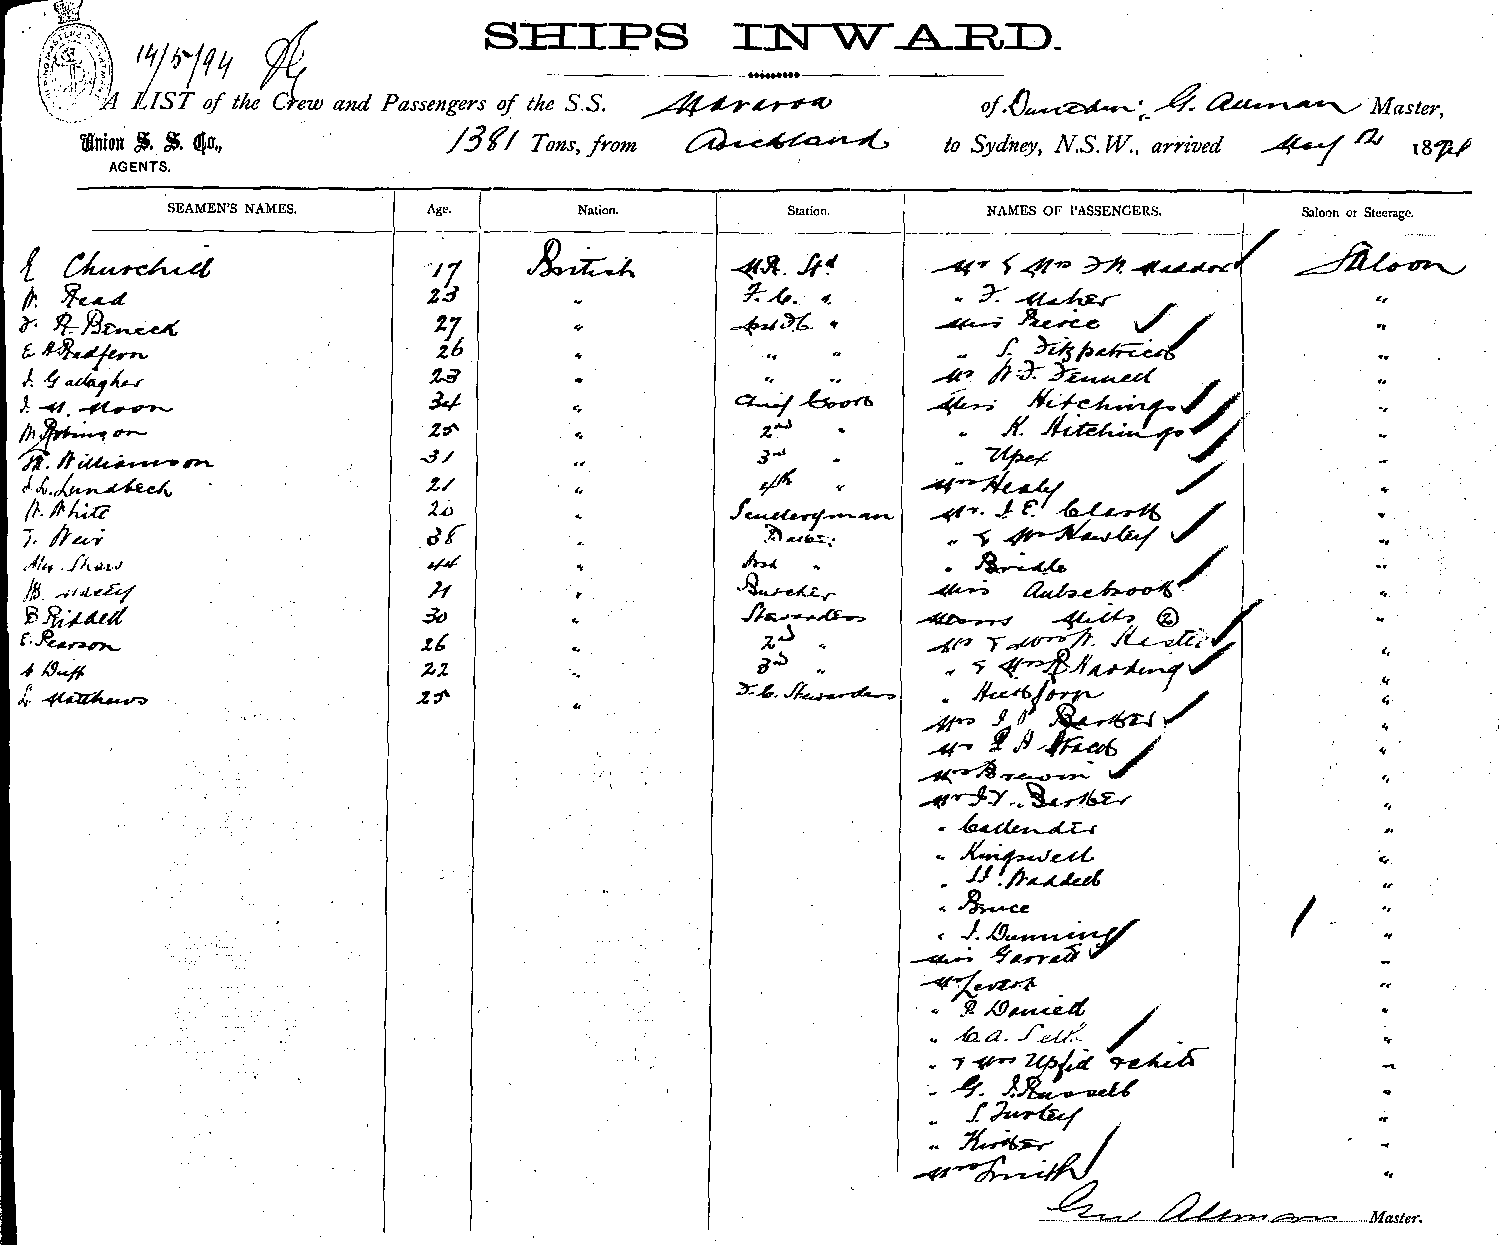 14/5/94
SHIPS INWARD.
A LIST of the Crew and Passengers of the S.S. Mararoa of Dunedin, G. Allman Master,
Union S. S. Co., 1381 Tons, from Auckland to Sydney, N.S.W., arrived May 12 1894
AGENTS.
SEAMEN'S NAMES. Age. Nation. Station. NAMES OF PASSENGERS. Saloon or Steerage.
E Churchill 17 British M.R. Std Mr & Mrs F W Maddock Saloon
W. Read 23 " F.C. " " F. Maher "
F. A. Beneck 27 " " Miss Pierce "
E A Radfern 26 " " " " S. Fitzpatrick "
J. Gallagher 23 " " " Mr W. F. Fennell "
J. M. Moon 34 " Chief Cook Miss Hitchings "
W Robinson 25 " 2nd " " K. Hitchings "
Williamson 31 " 3rd " " Upex "
J L. Lundbeck 21 " 4th " Mrs Healy "
W. White 20 " Sculleryman Mr. J. E. Clark "
T. Weir 38 " Baker " & Mrs Hawley "
Alex. Shaw 44 " " " Bridle "
21 " Butcher Miss Aubsebrook "
B Riddell 30 " Stewardess Messrs Mills (2) "
E. Pearson 26 " 2nd " Mr & Mrs W. "
Duff 22 " 3rd " " & Mrs R Harding "
L. Matthews 25 " F.C. Stewardess " "
Mrs J P Barker "
Mr "
Mrs Brewin "
Mr J. P. Barker "
" Callender "
" Kingswell "
" Waddell "
" Bruce "
" J. Dunning "
Miss Garratt "
Mr "
" R Daniell "
" C. A. "
" & Mrs Upfil & child "
" G. J. Russell "
" S. Turley "
" Kirker "
Mrs Smith "
Geo Allman Master.